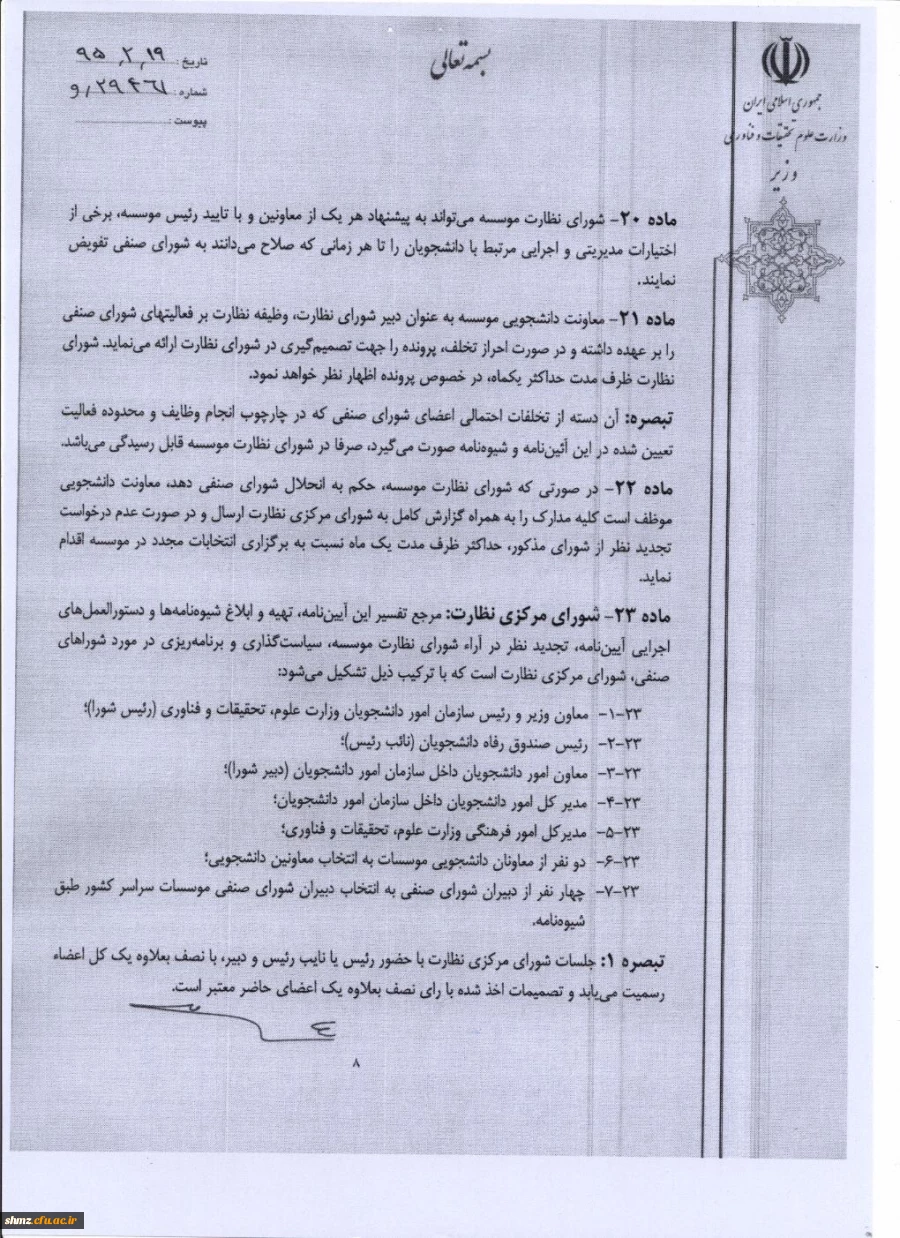 بسمه تعالی
جمهوری اسلامی ایران
وزارت علوم تحقیقات و فناوری
وزیر
تاریخ: ۹۵٫۲٫۱۹
شماره: ۲۹۴۶۱٫و
پیوست:
ماده ۲۰- شورای نظارت موسسه می‌تواند به پیشنهاد هر یک از معاونین و با تایید رئیس موسسه، برخی از
اختیارات مدیریتی و اجرایی مرتبط با دانشجویان را تا هر زمانی که صلاح می‌دانند به شورای صنفی تفویض
نمایند.
ماده ۲۱- معاونت دانشجویی موسسه به عنوان دبیر شورای نظارت، وظیفه نظارت بر فعالیتهای شورای صنفی
را بر عهده داشته و در صورت احراز تخلف، پرونده را جهت تصمیم‌گیری در شورای نظارت ارائه می‌نماید. شورای
نظارت ظرف مدت حداکثر یکماه، در خصوص پرونده اظهار نظر خواهد نمود.
تبصره: آن دسته از تخلفات احتمالی اعضای شورای صنفی که در چارچوب انجام وظایف و محدوده فعالیت
تعیین شده در این آئین‌نامه و شیوه‌نامه صورت می‌گیرد، صرفا در شورای نظارت موسسه قابل رسیدگی می‌باشد.
ماده ۲۲- در صورتی که شورای نظارت موسسه، حکم به انحلال شورای صنفی دهد، معاونت دانشجویی
موظف است کلیه مدارک را به همراه گزارش کامل به شورای مرکزی نظارت ارسال و در صورت عدم درخواست
تجدید نظر از شورای مذکور، حداکثر ظرف مدت یک ماه نسبت به برگزاری انتخابات مجدد در موسسه اقدام
نماید.
ماده ۲۳- شورای مرکزی نظارت: مرجع تفسیر این آیین‌نامه، تهیه و ابلاغ شیوه‌نامه‌ها و دستورالعمل‌های
اجرایی آیین‌نامه، تجدید نظر در آراء شورای نظارت موسسه، سیاست‌گذاری و برنامه‌ریزی در مورد شوراهای
صنفی، شورای مرکزی نظارت است که با ترکیب ذیل تشکیل می‌شود:
۲۳-۱- معاون وزیر و رئیس سازمان امور دانشجویان وزارت علوم، تحقیقات و فناوری (رئیس شورا)؛
۲۳-۲- رئیس صندوق رفاه دانشجویان (نائب رئیس)؛
۲۳-۳- معاون امور دانشجویان داخل سازمان امور دانشجویان (دبیر شورا)؛
۲۳-۴- مدیر کل امور دانشجویان داخل سازمان امور دانشجویان؛
۲۳-۵- مدیرکل امور فرهنگی وزارت علوم، تحقیقات و فناوری؛
۲۳-۶- دو نفر از معاونان دانشجویی موسسات به انتخاب معاونین دانشجویی؛
۲۳-۷- چهار نفر از دبیران شورای صنفی به انتخاب دبیران شورای صنفی موسسات سراسر کشور طبق
شیوه‌نامه.
تبصره ۱: جلسات شورای مرکزی نظارت با حضور رئیس یا نایب رئیس و دبیر، با نصف بعلاوه یک کل اعضاء
رسمیت می‌یابد و تصمیمات اخذ شده با رای نصف بعلاوه یک اعضای حاضر معتبر است.
۸
slvnz.cfu.ac.ir